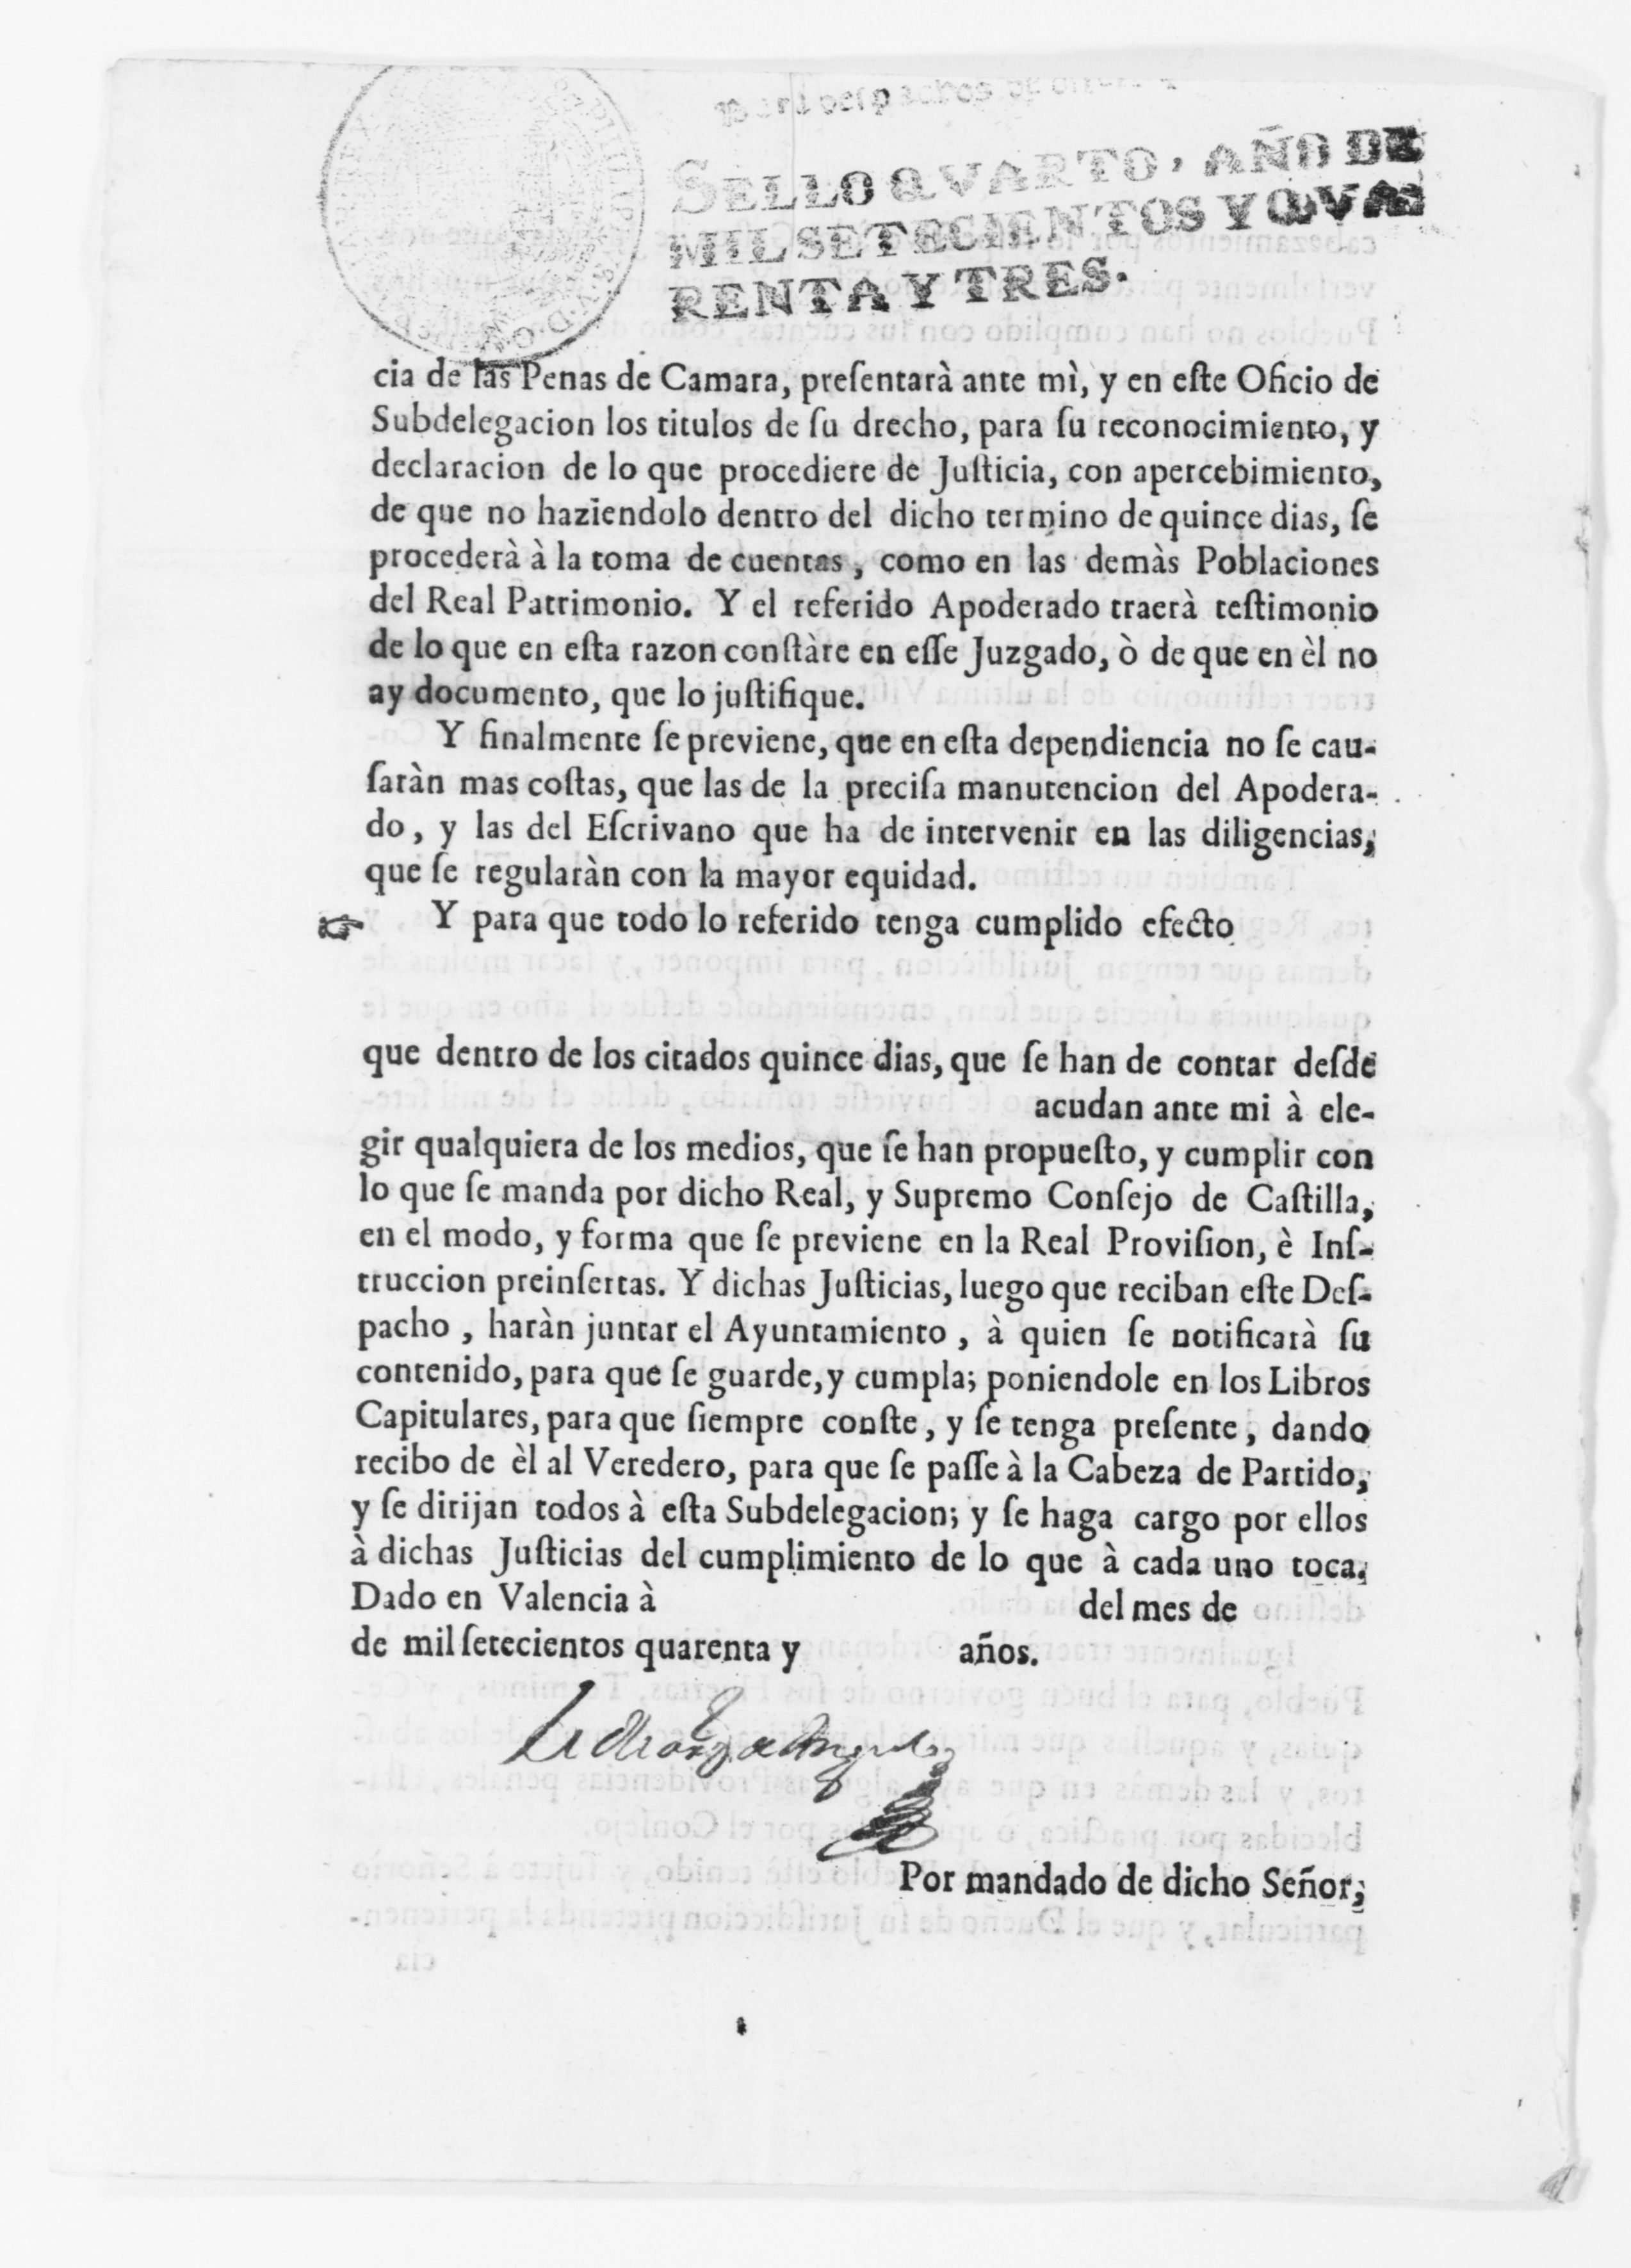 SELLO QVARTO, AÑO DE
MIL SETECIENTOS Y QVA
RENTA Y TRES.
cia de las Penas de Camara, preſentarà ante mì, y en eſte Oficio de
Subdelegacion los titulos de ſu drecho, para ſu reconocimiento, y
declaracion de lo que procediere de Juſticia, con apercebimiento,
de que no haziendolo dentro del dicho termino de quince dias, ſe
procederà à la toma de cuentas, como en las demàs Poblaciones
del Real Patrimonio. Y el referido Apoderado traerà teſtimonio
de lo que en eſta razon conſtàre en eſſe Juzgado, ò de que en èl no
ay documento, que lo juſtifique.
Y finalmente ſe previene, que en eſta dependiencia no ſe cau-
ſaràn mas coſtas, que las de la preciſa manutencion del Apodera-
do, y las del Eſcrivano que ha de intervenir en las diligencias,
que ſe regularàn con la mayor equidad.
☞ Y para que todo lo referido tenga cumplido efecto
que dentro de los citados quince dias, que ſe han de contar deſde
acudan ante mi à ele-
gir qualquiera de los medios, que ſe han propueſto, y cumplir con
lo que ſe manda por dicho Real, y Supremo Conſejo de Caſtilla,
en el modo, y forma que ſe previene en la Real Proviſion, è Inſ-
truccion preinſertas. Y dichas Juſticias, luego que reciban eſte Deſ-
pacho, haràn juntar el Ayuntamiento, à quien ſe notificarà ſu
contenido, para que ſe guarde, y cumpla; poniendole en los Libros
Capitulares, para que ſiempre conſte, y ſe tenga preſente, dando
recibo de èl al Veredero, para que ſe paſſe à la Cabeza de Partido,
y ſe dirijan todos à eſta Subdelegacion; y ſe haga cargo por ellos
à dichas Juſticias del cumplimiento de lo que à cada uno toca.
Dado en Valencia à del mes de
de mil ſetecientos quarenta y años.
Por mandado de dicho Señor,